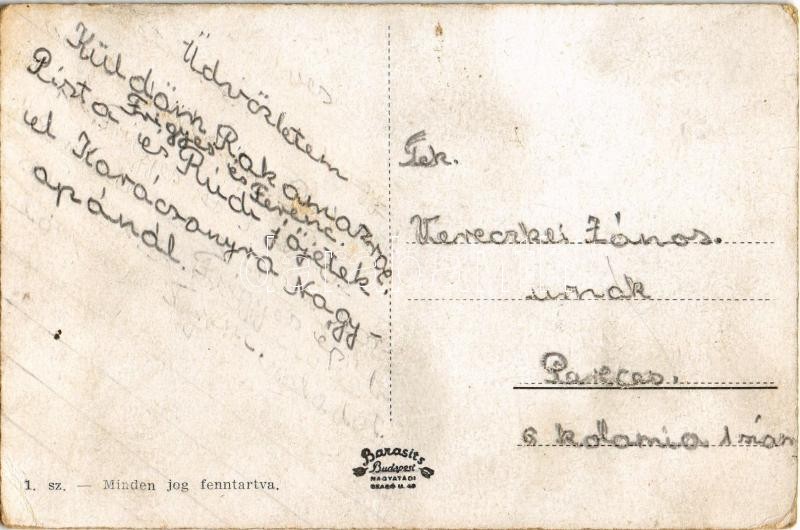 Üdvözletem
Küldöm Rakamazról.
Frigyes és Ferenc.
Pista és Rudi jöjetek
el Karácsonyra Nagy-
apánál.
Tek.
Kereczkei János.
urnak
6 kolomia 1 szám
Barasits
Budapest
NAGYATÁDI
SZABÓ U. 48
1. sz. — Minden jog fenntartva.